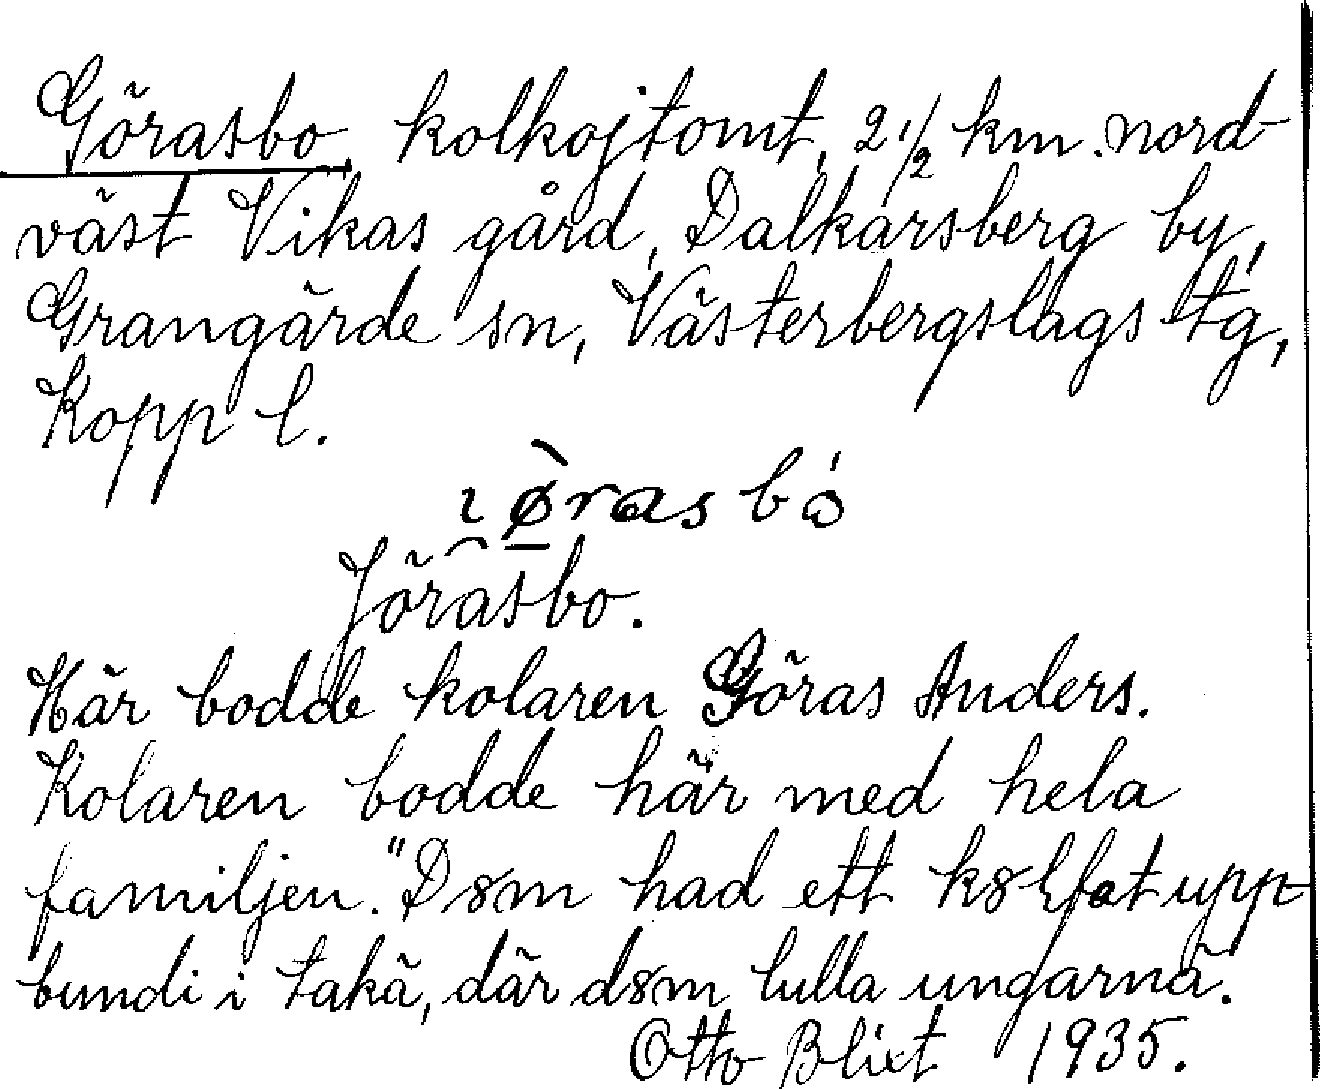 Görasbo, kolkojtomt, 2 1/2 km. nord-
väst Vikas gård, Dalkarsberg by,
Grangärde sn, Västerbergslags tg,
Kopp l.
ıø̀rasbó
Jörasbo.
Här bodde kolaren Göras Anders.
Kolaren bodde här med hela
familjen. "D8m had ett k8lfat upp-
bundi i takä, där d8m lulla ungarnä.
Otto Blixt 1935.